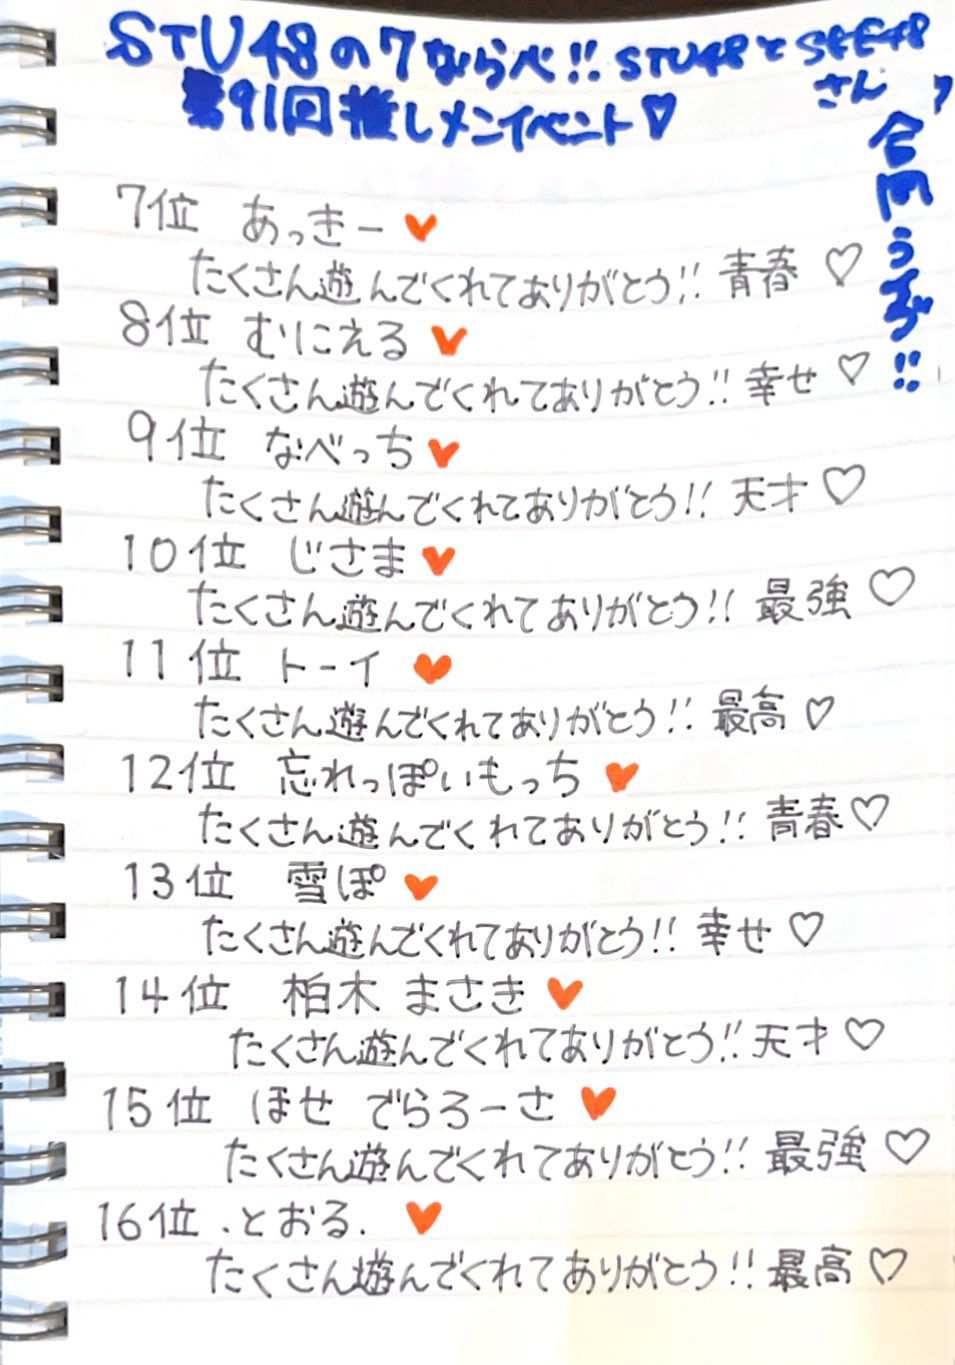 STU48の7ならべ!! STU48とSKE48さん
合同うれし!!
第91回推しメンイベント♡
7位 あっきー♥
たくさん遊んでくれてありがとう!! 青春♡
8位 むにえる♥
たくさん遊んでくれてありがとう!! 幸せ♡
9位 なべっち♥
たくさん遊んでくれてありがとう!! 天才♡
10位 じさま♥
たくさん遊んでくれてありがとう!! 最強♡
11位 トーイ♥
たくさん遊んでくれてありがとう!! 最高♡
12位 忘れっぽいもっち♥
たくさん遊んでくれてありがとう!! 青春♡
13位 雪ぽ♥
たくさん遊んでくれてありがとう!! 幸せ♡
14位 柏木 まさき♥
たくさん遊んでくれてありがとう!! 天才♡
15位 ほせ でらろーさ♥
たくさん遊んでくれてありがとう!! 最強♡
16位 .とおる.♥
たくさん遊んでくれてありがとう!! 最高♡